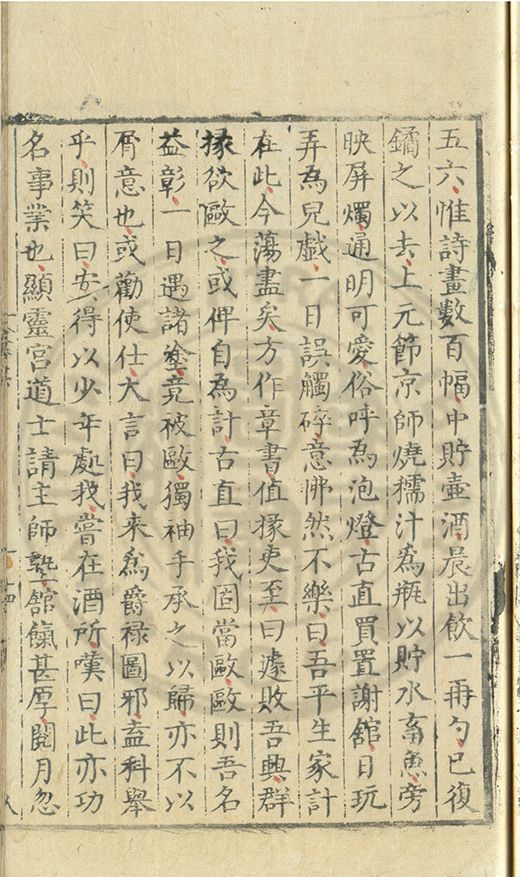 五六惟詩畫數百幅中貯壺酒晨出飲一再勺已復
鐍之以去上元節京師燒糯汁爲瓶以貯水畜魚旁
映屏燭通明可愛俗呼爲泡燈古直買置謝舘日玩
弄爲兒戯一日誤觸碎意怫然不樂曰吾平生家計
在此今蕩盡矣方作章書值掾吏至曰遽敗吾興群
掾欲歐之或俾自爲計古直曰我固當歐歐則吾名
益彰一日遇諸塗竟被歐獨袖手承之以歸亦不以
屑意也或勸使仕大言曰我來爲爵祿圖邪盖科舉
乎則笑曰安得以少年處我嘗在酒所嘆曰此亦功
名事業也顯靈宫道士請主師塾舘餼甚厚閱月忽